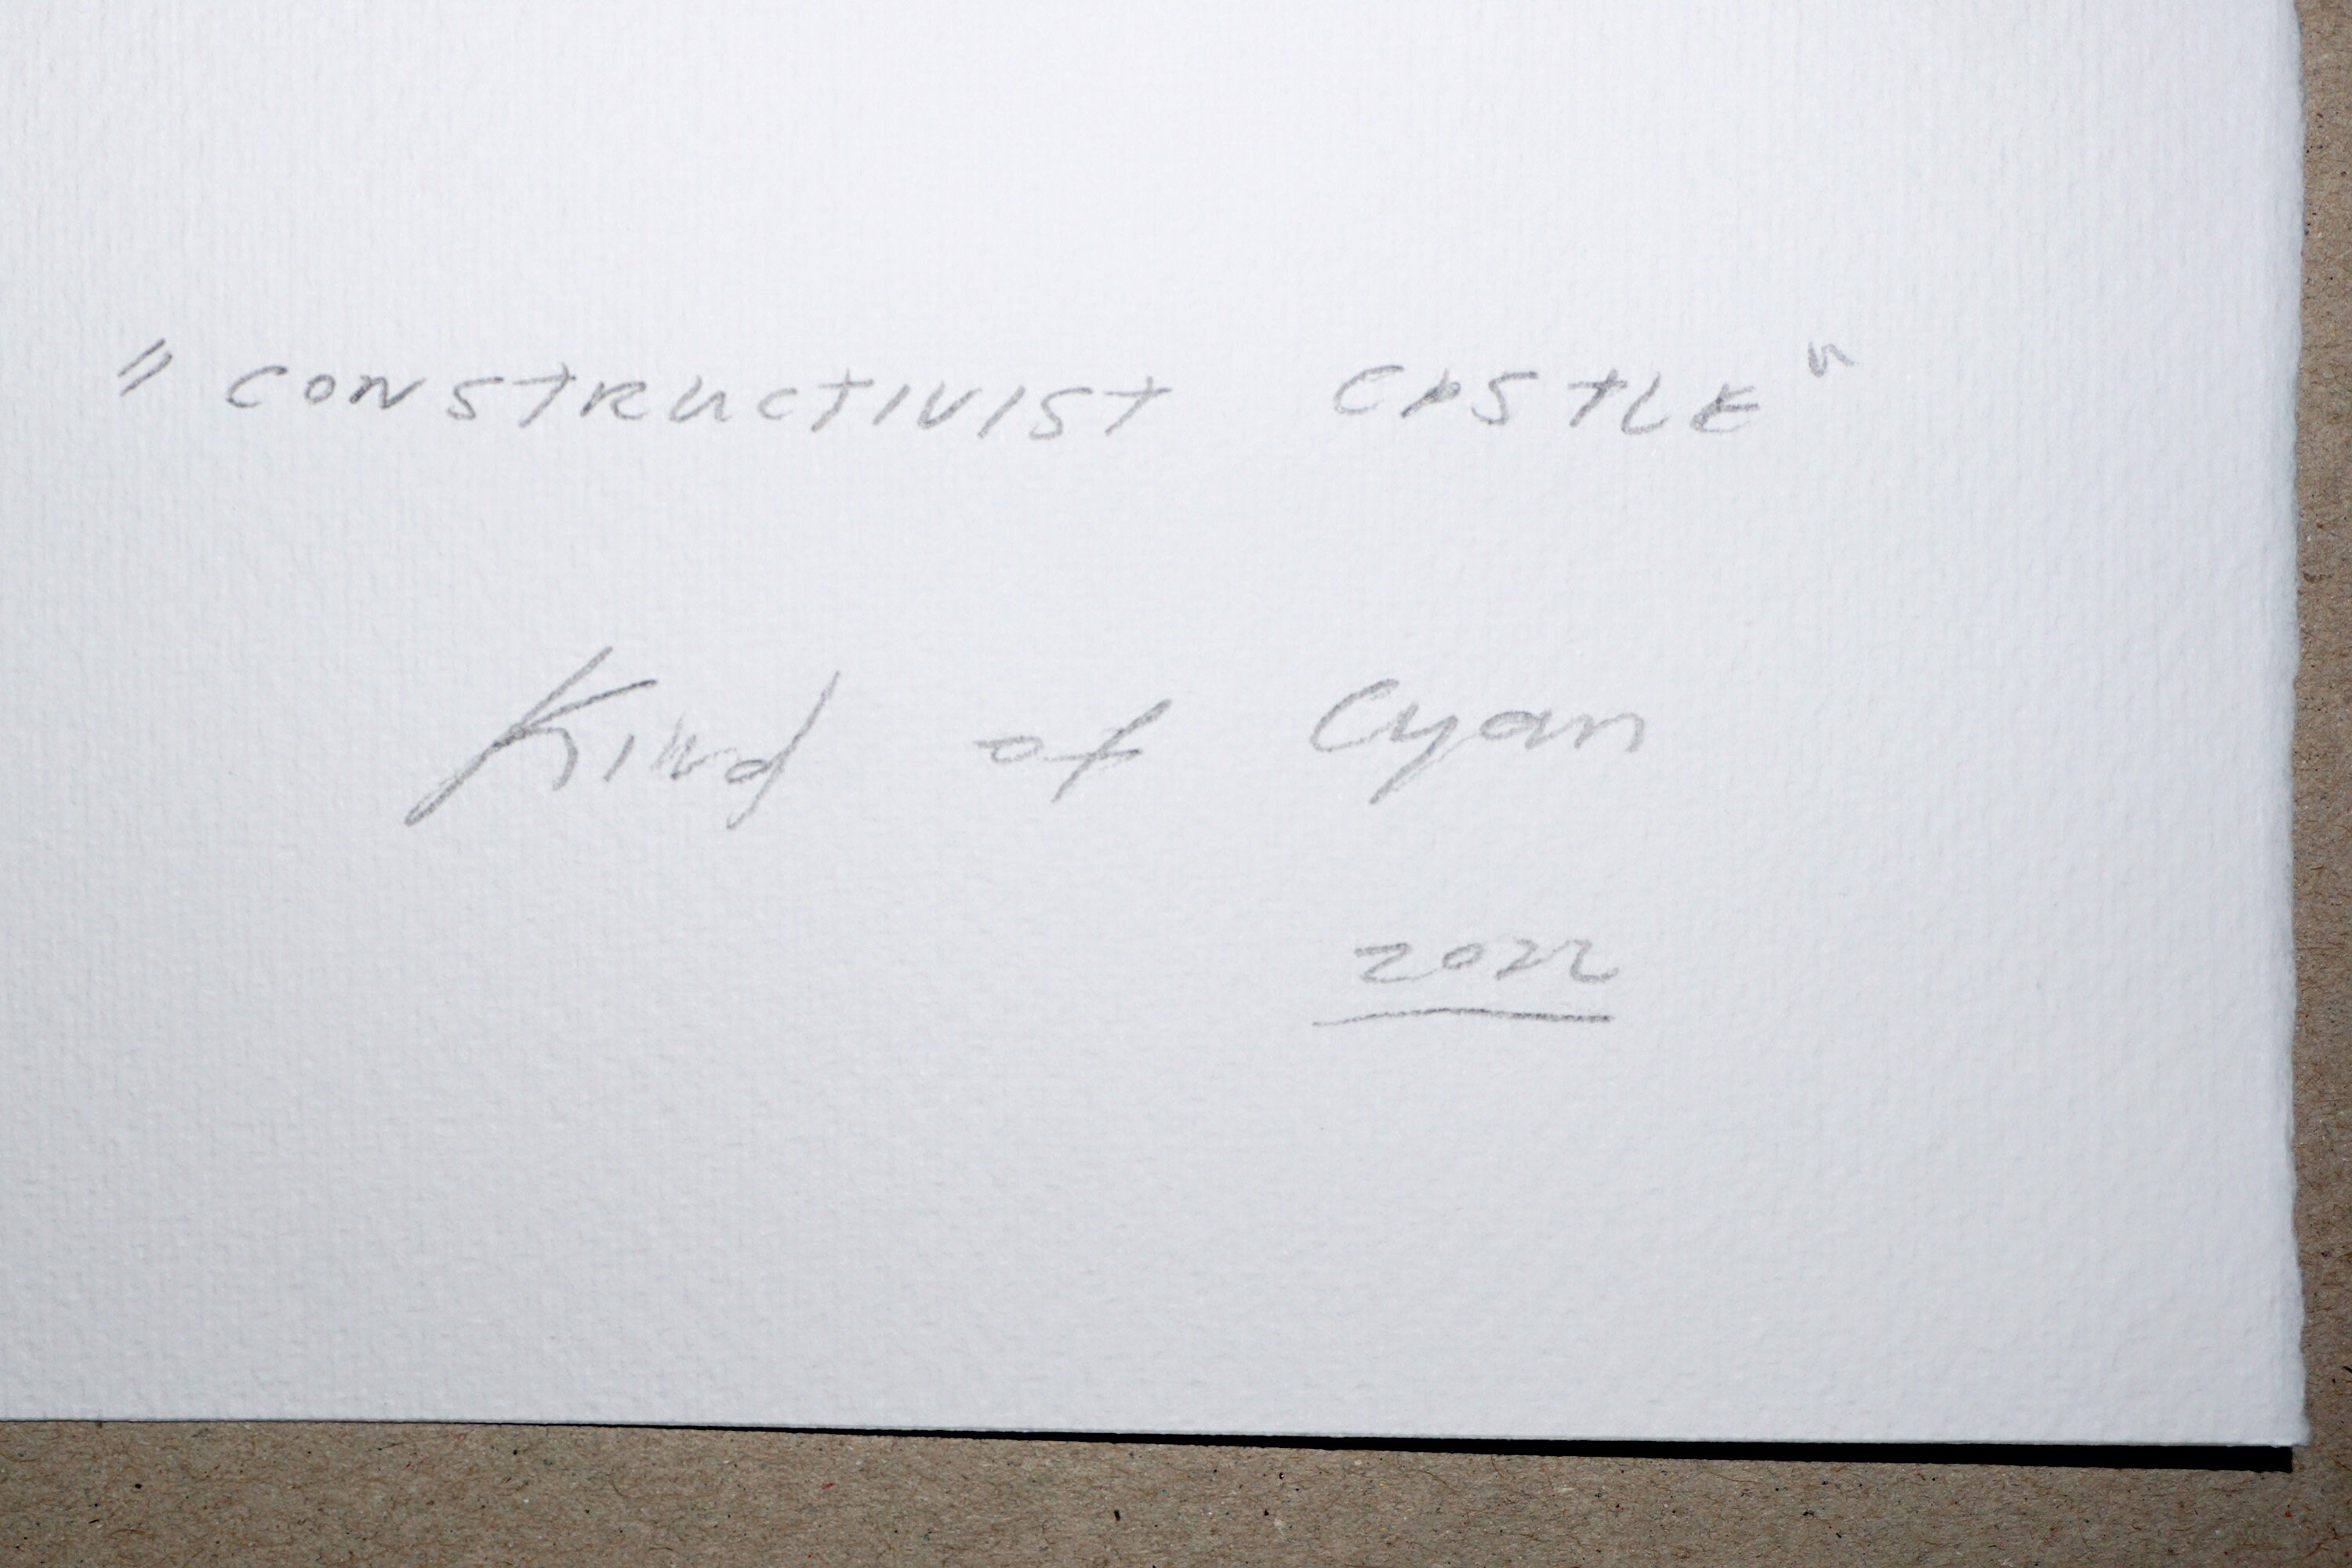 "CONSTRUCTIVIST CASTLE"
Kind of Cyan
2022